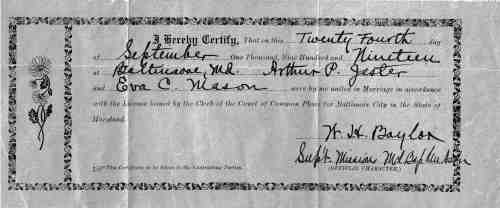 I Hereby Certify, That on this Twenty Fourth day
of September One Thousand, Nine Hundred and Nineteen
at Baltimore, Md. Arthur P. Jester
and Eva C. Mason were by me united in Marriage in accordance
with the License issued by the Clerk of the Court of Common Pleas for Baltimore City in the State of
Maryland.
W. H. Baylor
Supt. Mission Md Bap
This Certificate to be given to the Contracting Parties.
(OFFICIAL CHARACTER.)